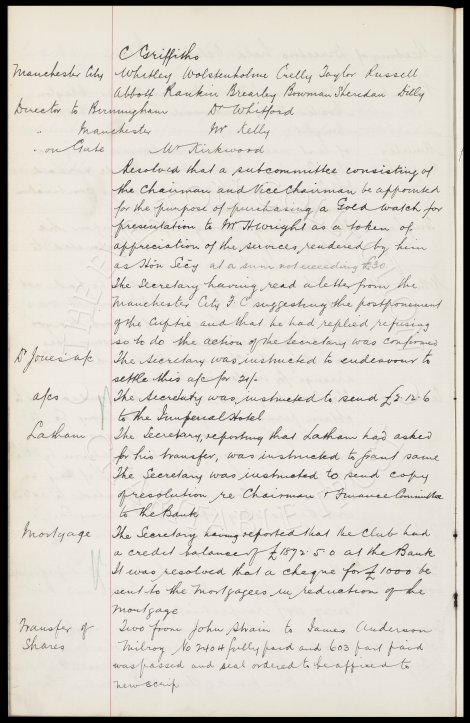 C Griffiths
Manchester City Whitley Wolstenholme Crelly Taylor Russell
Abbott Rankin Brearley Bowman Sheridan Dilly
Director to Birmingham Dr Whitford
" Manchester Mr Kelly
" on Gate Mr Kirkwood
Resolved that a subcommittee consisting of
the Chairman and Vice Chairman be appointed
for the purpose of purchasing a Gold watch for
presentation to Mr H Wright as a token of
appreciation of the services rendered by him
as Hon Secy at a sum not exceeding £30
The Secretary having read a letter from the
Manchester City F.C suggesting the postponement
of the Cuptie and that he had replied refusing
so to do the action of the Secretary was confirmed
Dr Jones' a/c The Secretary was instructed to endeavour to
settle this a/c for 21/-
a/cs The Secretary was instructed to send £2.12.6
to the Imperial Hotel
Latham The Secretary, reporting that Latham had asked
for his transfer, was instructed to grant same
The Secretary was instructed to send copy
of resolution re Chairman & Finance Committee
to the Bank
Mortgage The Secretary having reported that the Club had
a credit balance of £1872.5.0 at the Bank
It was resolved that a cheque for £1000 be
sent to the Mortgagees in reduction of the
Mortgage
Transfer of Two from John Strain to James Anderson
Shares Milroy No 2404 fully paid and 603 part paid
was passed and seal ordered to be affixed to
new scrip